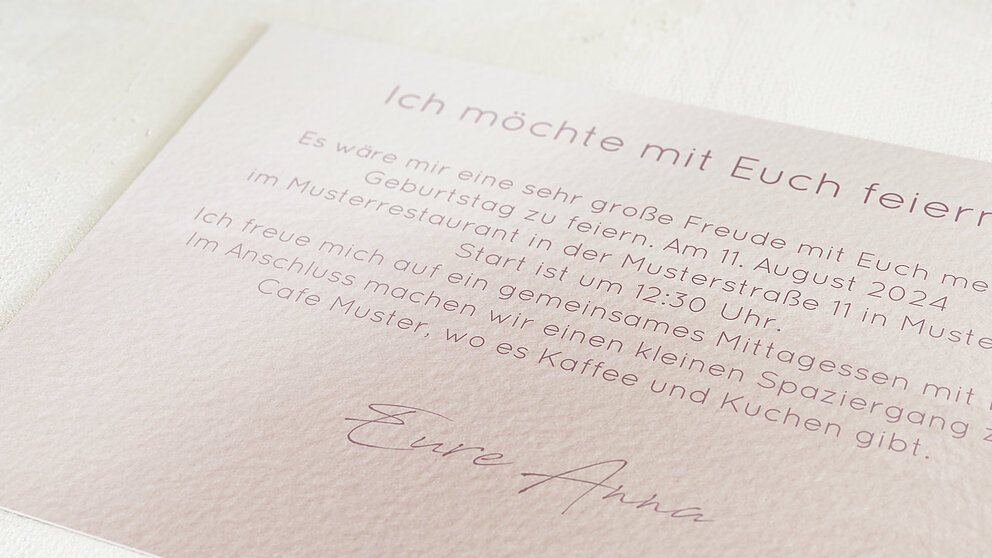 Ich möchte mit Euch feiern
Es wäre mir eine sehr große Freude mit Euch
Geburtstag zu feiern. Am 11. August 2024
im Musterrestaurant in der Musterstraße 11 in
Start ist um 12:30 Uhr.
Ich freue mich auf ein gemeinsames Mittagessen mit
Im Anschluss machen wir einen kleinen Spaziergang
Cafe Muster, wo es Kaffee und Kuchen gibt.
Eure Anna